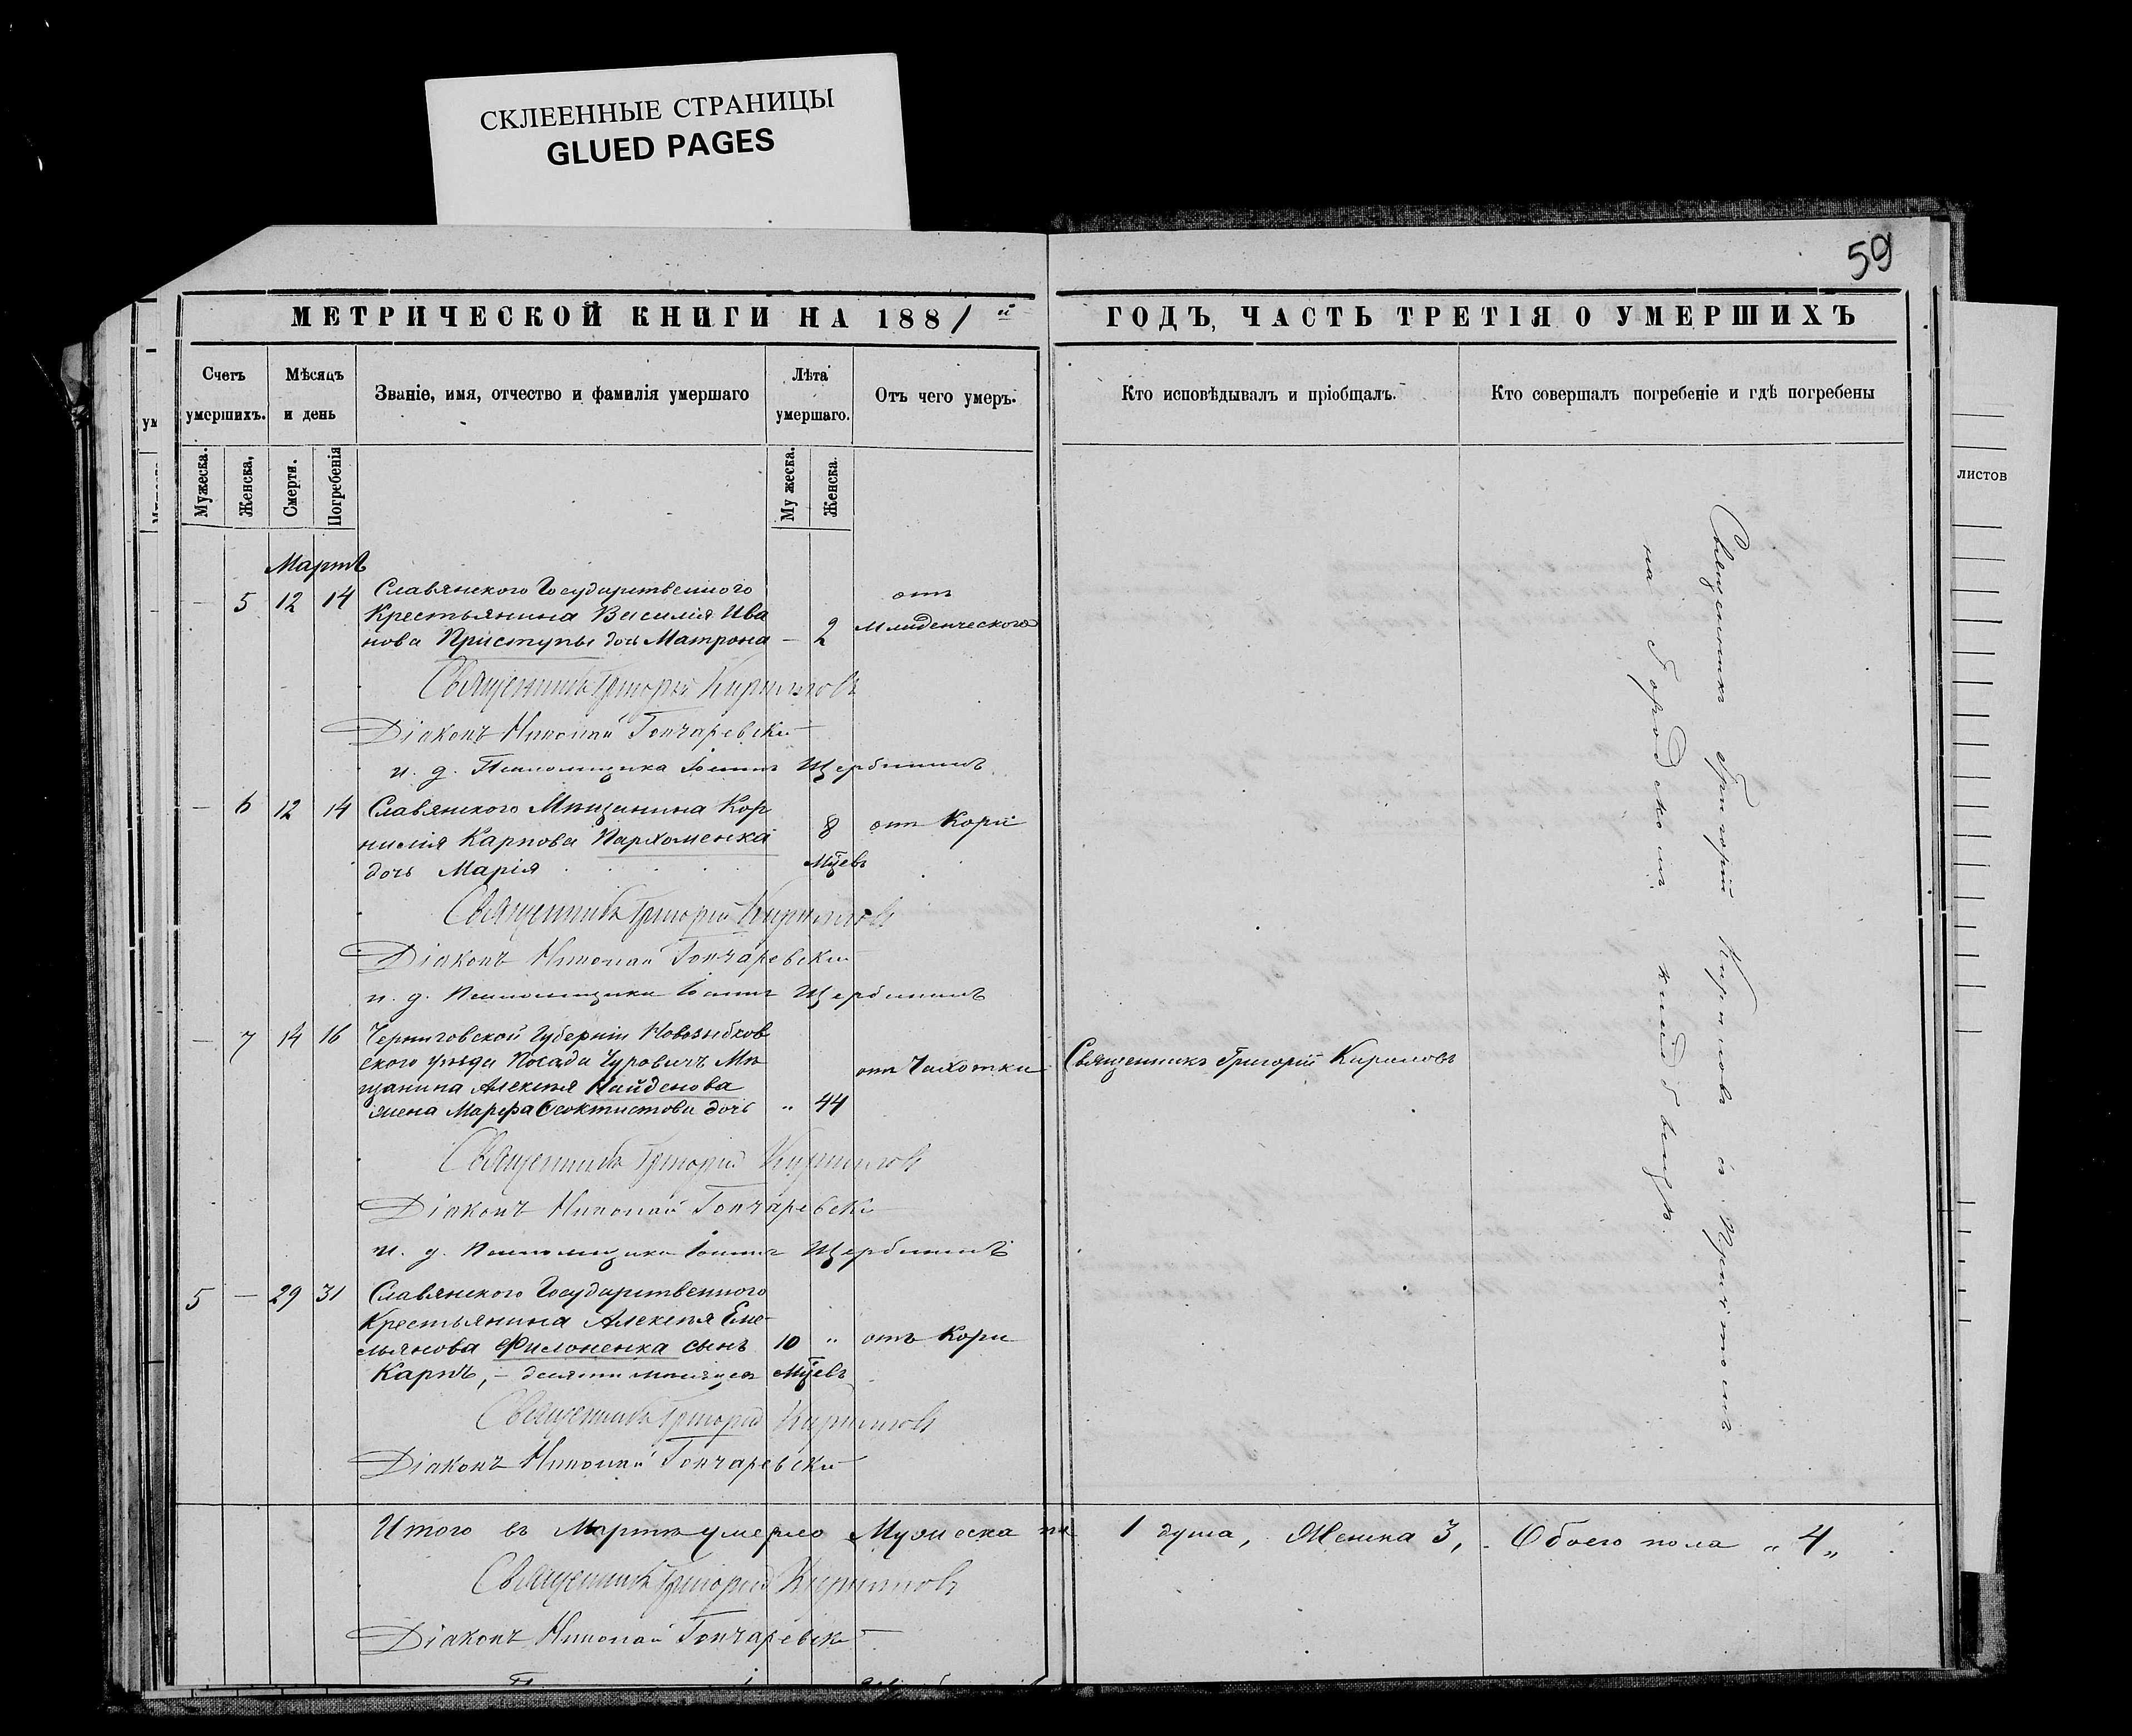 СКЛЕЕННЫЕ СТРАНИЦЫ
GLUED PAGES
59
МЕТРИЧЕСКОЙ КНИГИ НА 1881 й
ГОДЪ, ЧАСТЬ ТРЕТІЯ О УМЕРШИХЪ
Счетъ умершихъ.
Мѣсяцъ и день
Званіе, имя, отчество и фамилія умершаго
Лѣта умершаго.
Отъ чего умеръ.
Кто исповѣдывалъ и пріобщалъ.
Кто совершалъ погребеніе и гдѣ погребены
Мужеска.
Женска,
Смерти.
Погребенія
Му жеска.
Женска.
листов
Мартъ
— 5 12 14 Славянского Государственного
Крестьянина Василія Ива
нова Приступы дочь Матрона — 2
отъ
Младенческого
Священникъ Григорій Кириловъ
Діаконъ Николай Гончаревскій
и. д. Псаломщика Іоаннъ Щербининъ
— 6 12 14 Славянского Мѣщанина Кор
нилія Карпова Пархоменка 8 отъ Кори
дочь Марія М͠цевъ
Священникъ Григорій Кириловъ
Діаконъ Николай Гончаревскій
и. д. Псаломщика Іоаннъ Щербининъ
— 7 14 16 Черниговской Губерніи Новозыбков
ского уѣзда Посада Чуровичъ Мѣ
щанина Алексѣя Найденова
жена Марфа Ѳеоктистова дочь " 44
отъ Чахотки
Священникъ Григорій Кириловъ
Священникъ Григорій Кириловъ
Діаконъ Николай Гончаревскій
и. д. Псаломщика Іоаннъ Щербининъ
5 — 29 31 Славянского Государственного
Крестьянина Алексѣя Еме-
льянова Филоненка сынъ 10 " отъ Кори
Карпъ, — десяти мѣсяцевъ М͠цевъ
Священникъ Григорій Кириловъ
Діаконъ Николай Гончаревскій
Священникъ Григорій Кириловъ съ Причтомъ
на Городскомъ кладбищѣ.
Итого въ Мартѣ умерло Мужеска пола 1 душа, Женска 3, Обоего пола „ 4 „
Священникъ Григорій Кириловъ
Діаконъ Николай Гончаревскій